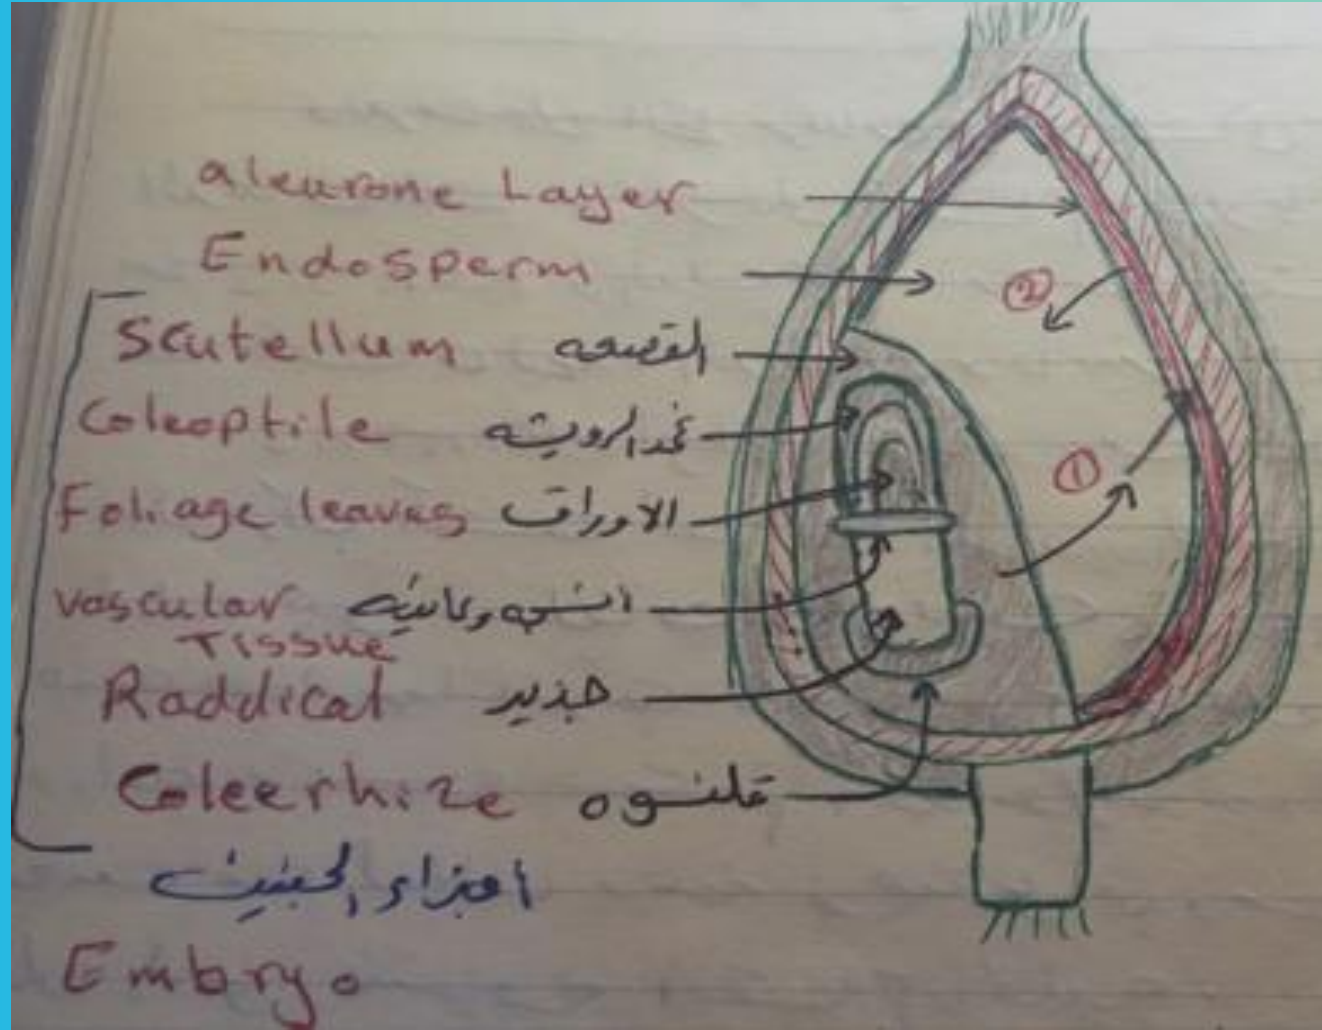 aleurone Layer
Endosperm
②
Scutellum القصعه
Coleoptile غمد الرويشه
①
Foliage leaves الاوراق
vascular انسجه وعائيه
Tissue
Raddical جذير
Coleerhize قلنسوه
أجزاء الجنين
Embryo